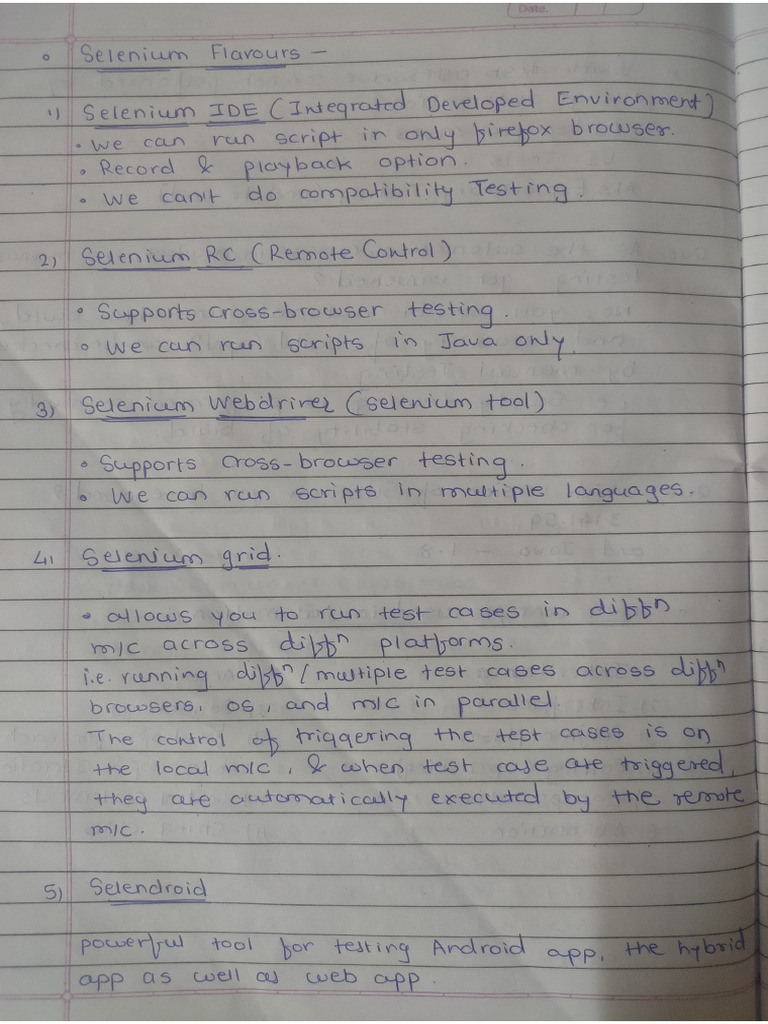 Date.
• Selenium Flavours –
1) Selenium IDE (Integrated Developed Environment)
• We can run script in only firefox browser.
• Record & playback option.
• We can't do compatibility Testing.
2) Selenium RC (Remote Control)
• Supports cross-browser testing.
• We can run scripts in Java only.
3) Selenium Webdriver (selenium tool)
• Supports cross-browser testing.
• We can run scripts in multiple languages.
4) Selenium grid.
• allows you to run test cases in diffn
m/c across diffn platforms.
i.e. running diffn/multiple test cases across diffn
browsers, os, and m/c in parallel.
The control of triggering the test cases is on
the local m/c, & when test case are triggered,
they are automatically executed by the remote
m/c.
5) Selendroid
powerful tool for testing Android app, the hybrid
app as well as web app.